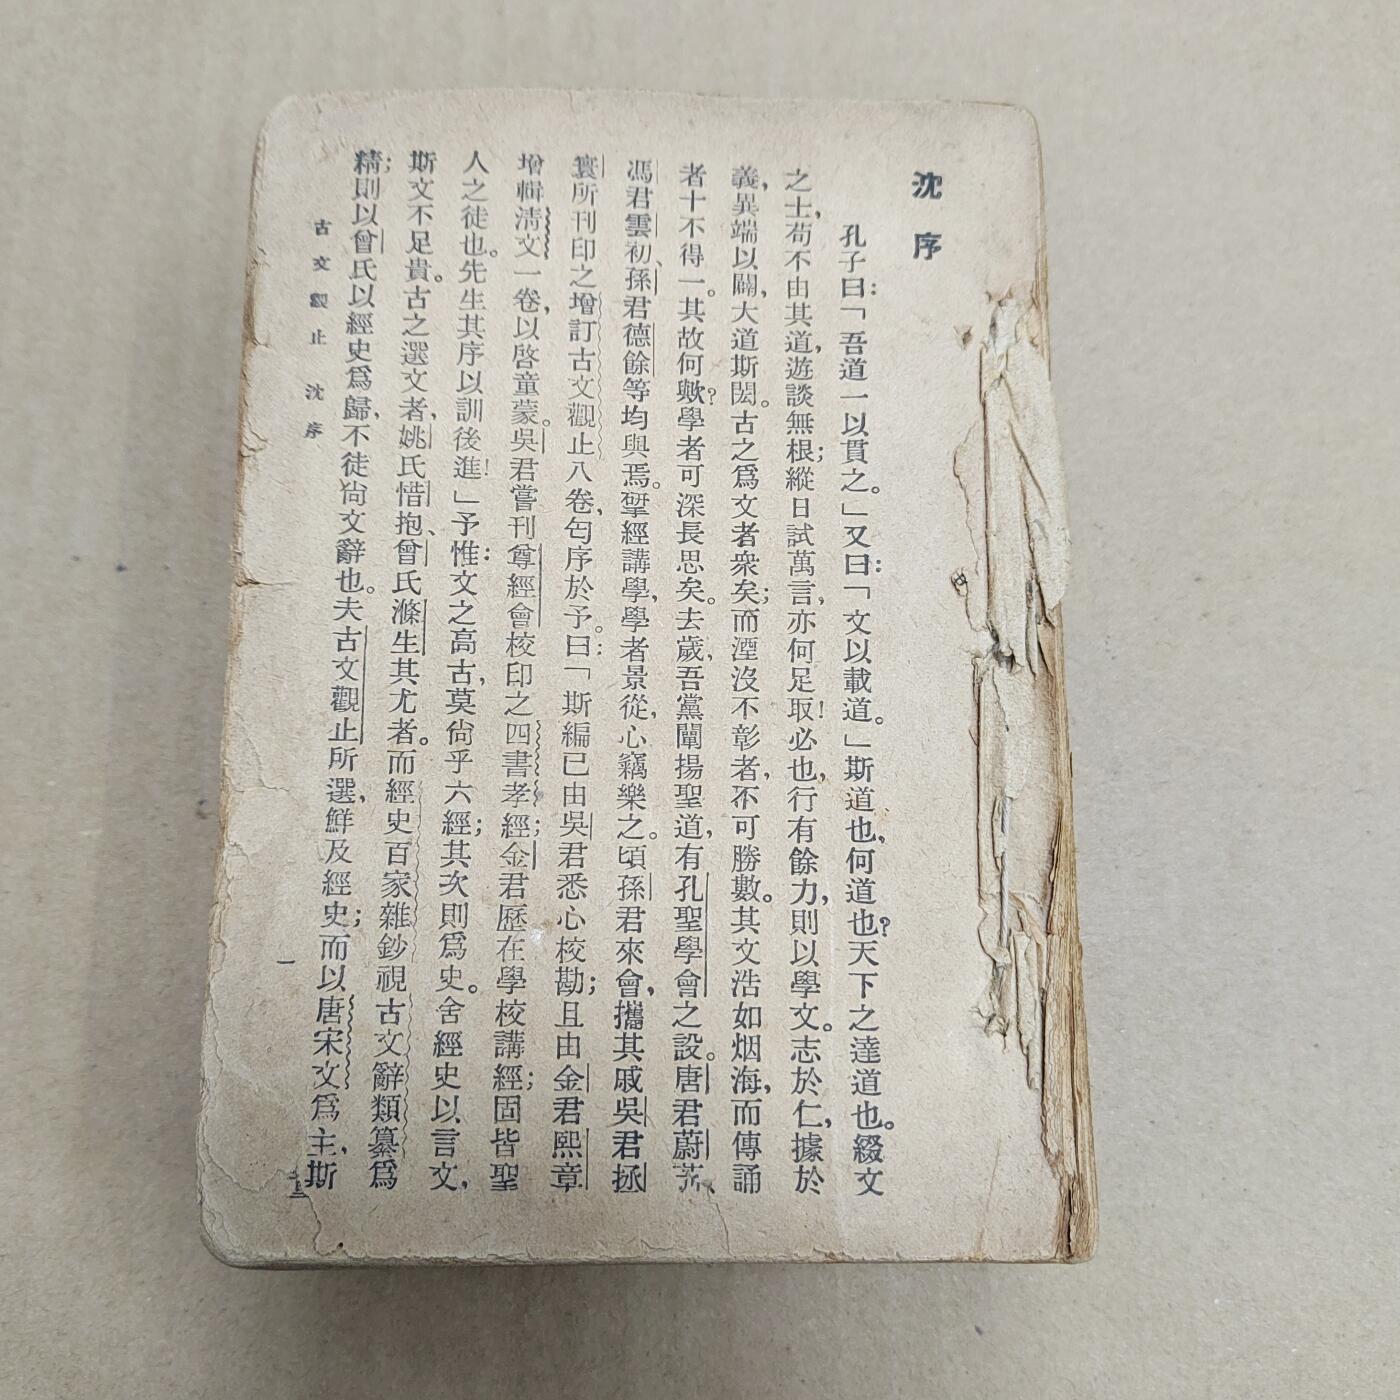 沈序
孔子曰：「吾道一以貫之。」又曰：「文以載道。」斯道也，何道也？天下之達道也。綴文
之士，苟不由其道，遊談無根；縱日試萬言，亦何足取！必也，行有餘力，則以學文。志於仁，據於
義，異端以闢，大道斯閎。古之爲文者衆矣；而湮沒不彰者，不可勝數。其文浩如烟海，而傳誦
者十不得一。其故何歟？學者可深長思矣。去歲，吾黨闡揚聖道，有孔聖學會之設。唐君蔚芝、
馮君雲初、孫君德餘等均與焉。揅經講學，學者景從，心竊樂之。頃孫君來會，攜其戚吳君拯
寰所刊印之增訂古文觀止八卷，匄序於予。曰：「斯編已由吳君悉心校勘；且由金君熙章
增輯清文一卷，以啓童蒙。吳君嘗刊尊經會校印之四書孝經；金君歷在學校講經；固皆聖
人之徒也。先生其序以訓後進！」予惟：文之高古，莫尙乎六經；其次則爲史。舍經史以言文，
斯文不足貴。古之選文者，姚氏惜抱、曾氏滌生其尤者。而經史百家雜鈔視古文辭類纂爲
精；則以曾氏以經史爲歸，不徒尙文辭也。夫古文觀止所選，鮮及經史；而以唐宋文爲主，斯
古文觀止　沈序
一